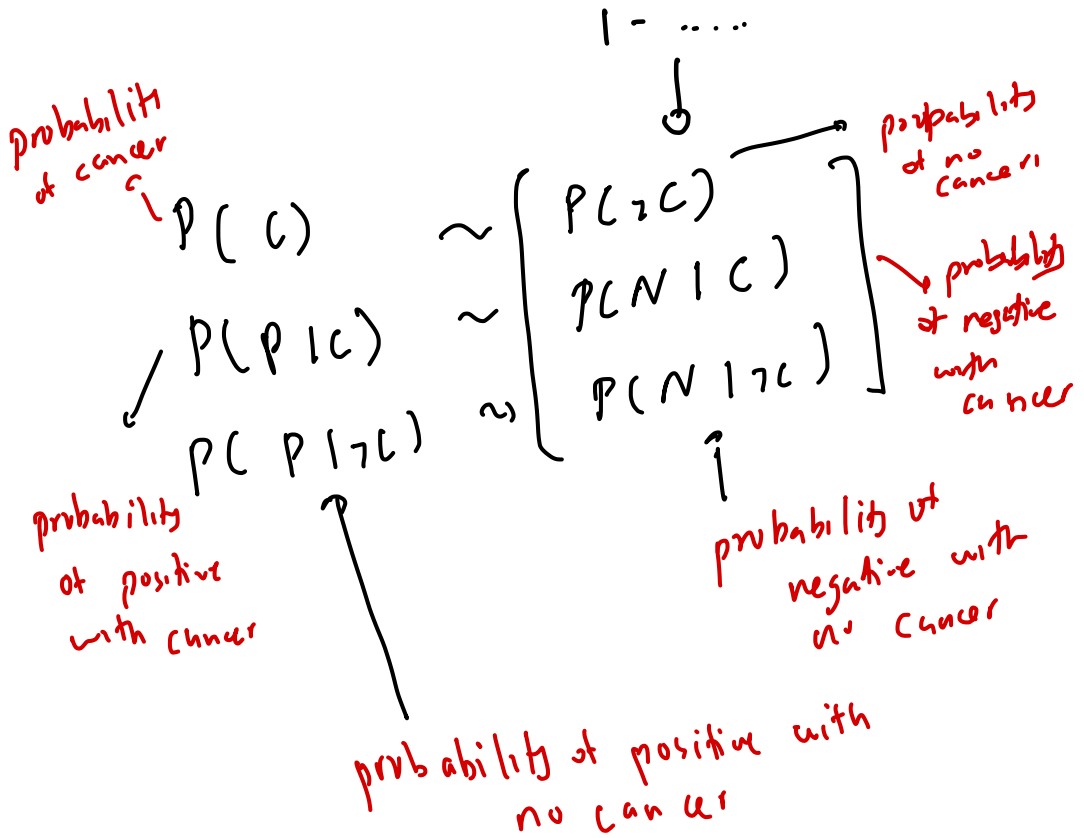 1 - .....
probability
of cancer
P(C) ~ P(¬C)
probability
of no
cancer
P(P|C) ~ P(N|C)
probability
of negative
with
cancer
P(P|¬C) ~ P(N|¬C)
probability
of positive
with cancer
probability of
negative with
no cancer
probability of positive with
no cancer